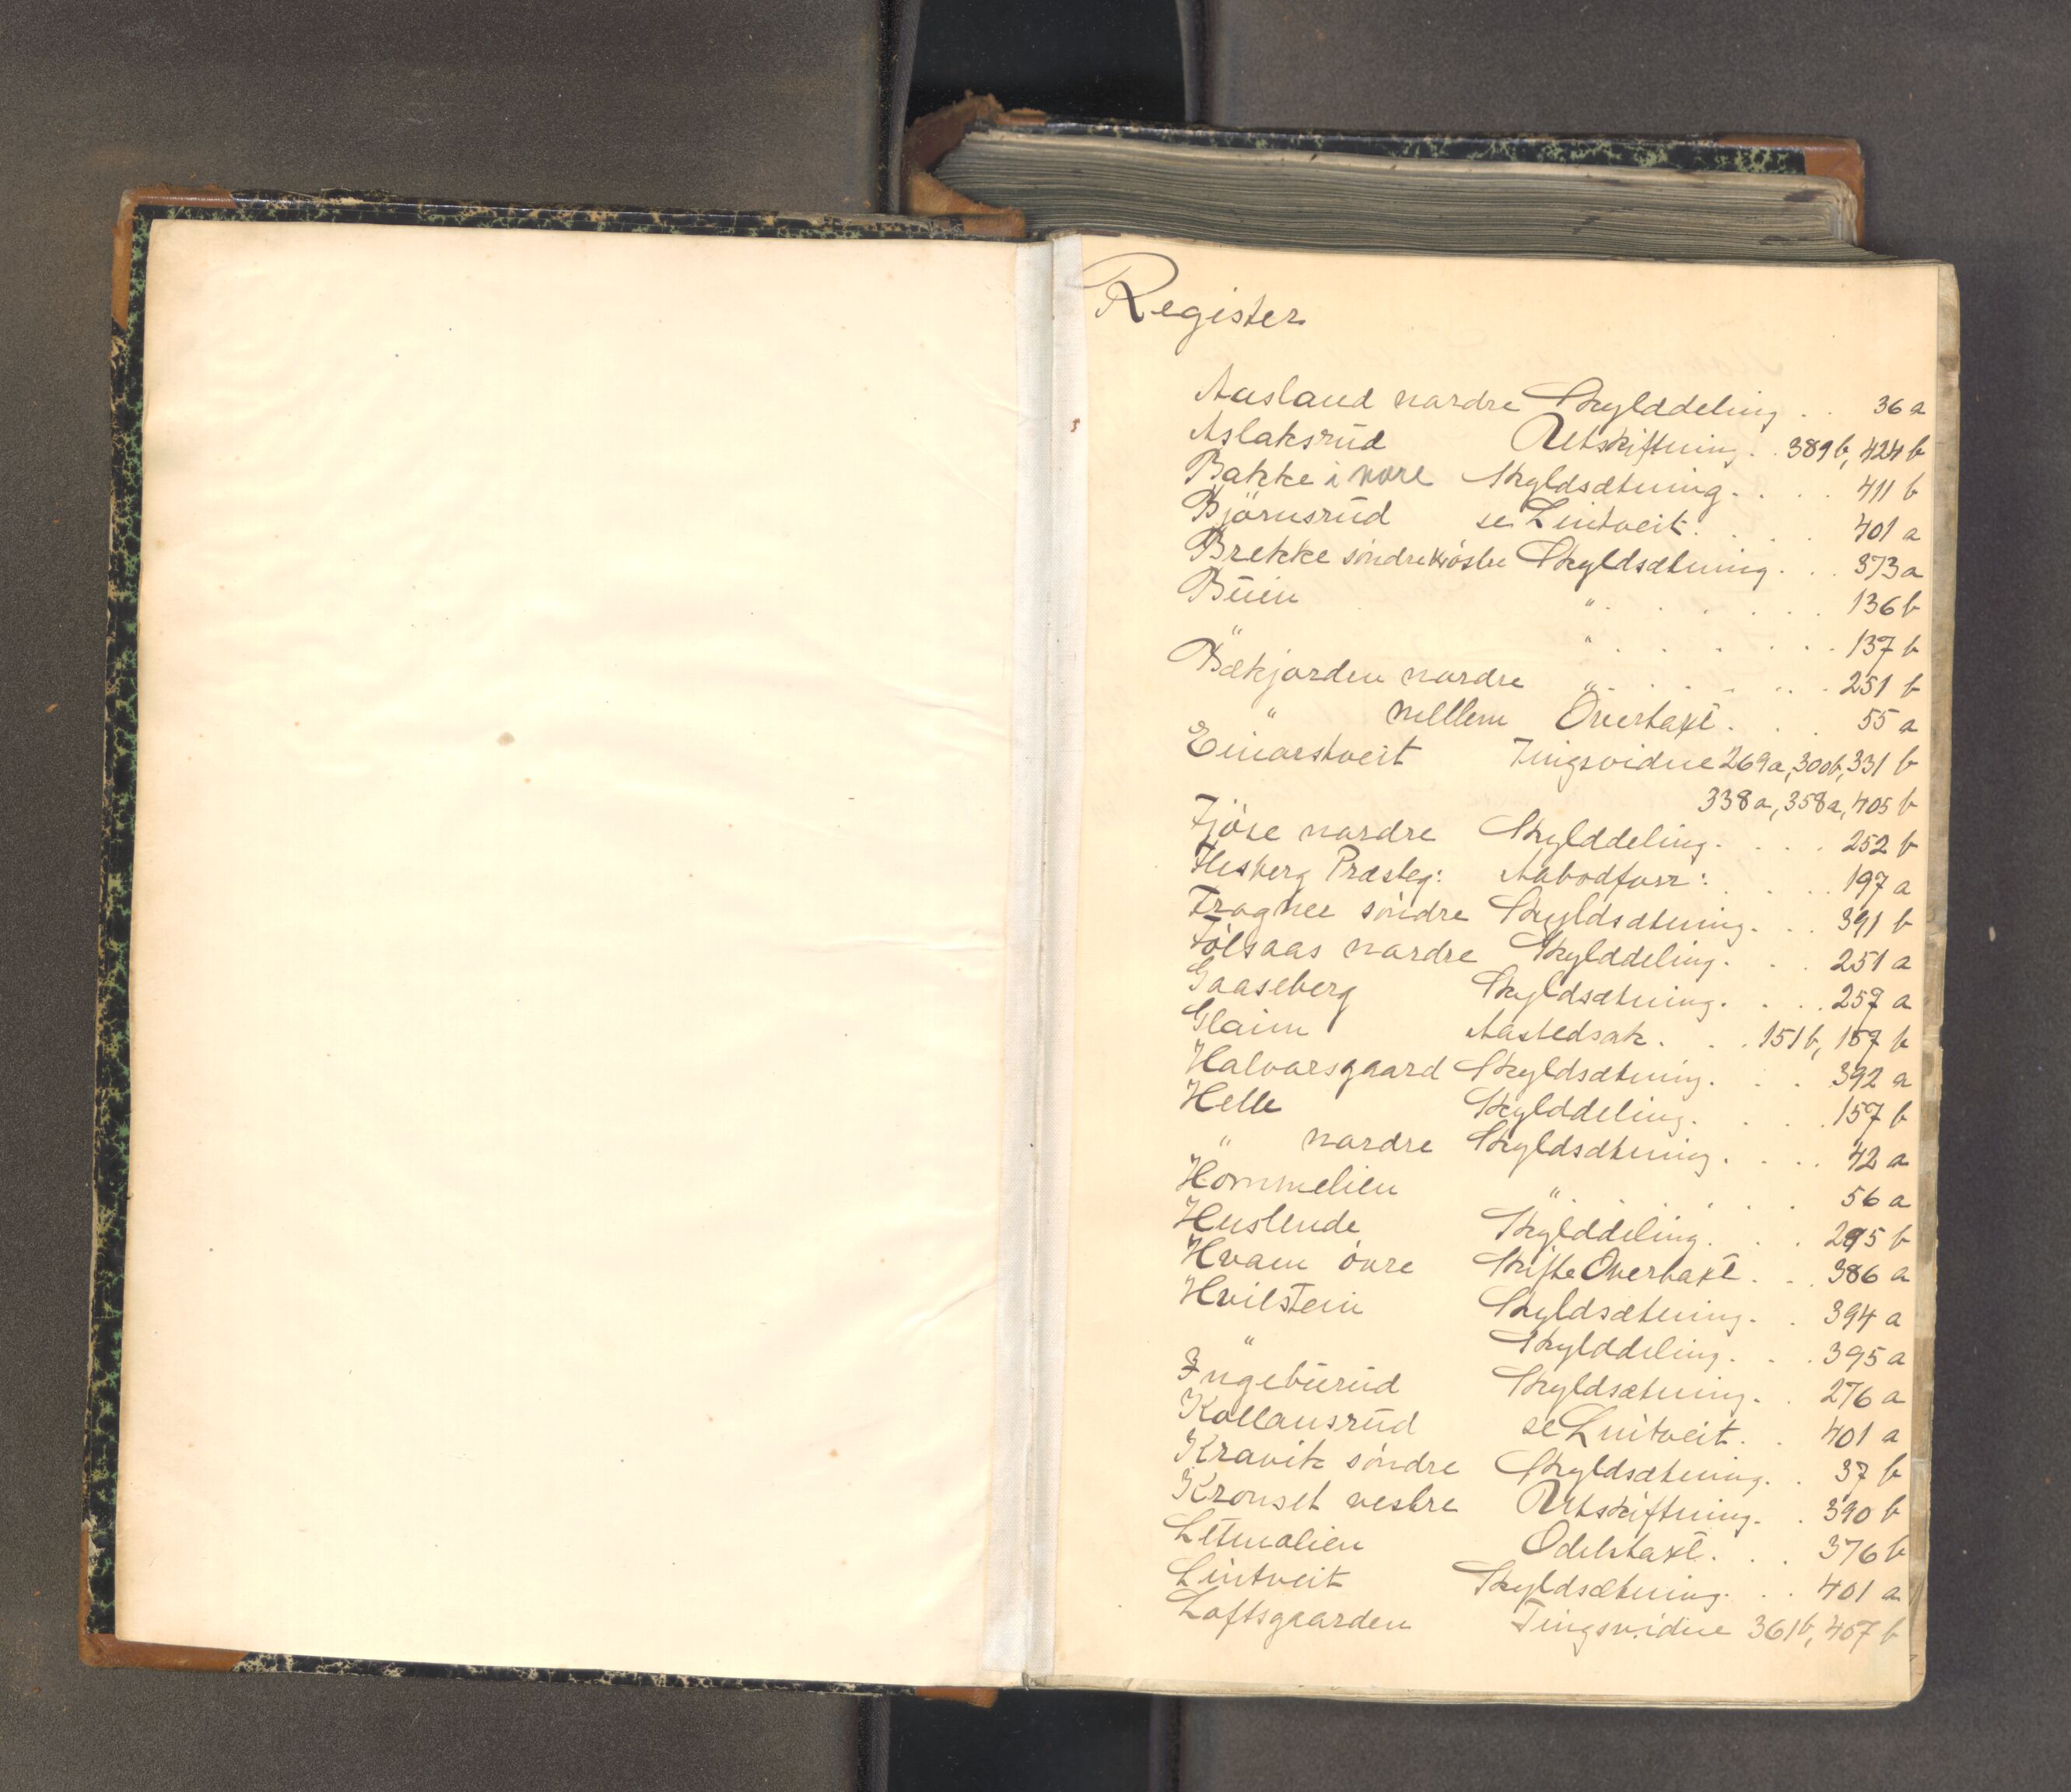 Register
Aasland nordre Skylddeling . . 36 a
Aslaksrud Utskiftning . . 389 b, 424 b
Bakke i nore Skyldsætning . . . . 411 b
Björnsrud se Lintveit . . . . 401 a
Brekke söndre Skyldsætning . . . 373 a
Buin " . . . . . . 136 b
" " . . . . . . 137 b
Bækjorden nordre " . . . . . . 251 b
" mellem Overtaxt . . . 55 a
Einarstveit Tingsvidne 269 a, 300 b, 331 b
338 a, 358 a, 405 b
Fjöse nordre Skylddeling . . . . 252 b
Flesberg Præsteg: Aabodforr: . . . . 197 a
Frogner söndre Skyldsætning . . . 391 b
Fölsaas nordre Skylddeling . . . 251 a
Gaaseberg Skyldsætning . . . 257 a
Glaim Aastedsak . . . 151 b, 157 b
Halvorsgaard Skyldsætning . . . 392 a
Helle Skylddeling . . . . 157 b
" nordre Skyldsætning . . . . 42 a
Hommelien " . . . . . 56 a
Huslende Skylddeling . . . 295 b
Hvam övre Skifte Overtaxt . . . 386 a
Hvilstein Skyldsætning . . 394 a
" Skylddeling . . . 395 a
Ingeburud Skyldsætning . . 276 a
Kollansrud se Lintveit . . 401 a
Kravik söndre Skyldsætning . . 37 b
Kronset vestre Utskiftning . . 390 b
Letmolien Odelstaxt . . . 376 b
Lintveit Skyldsætning . . . 401 a
Loftsgaarden Tingsvidne 361 b, 407 b